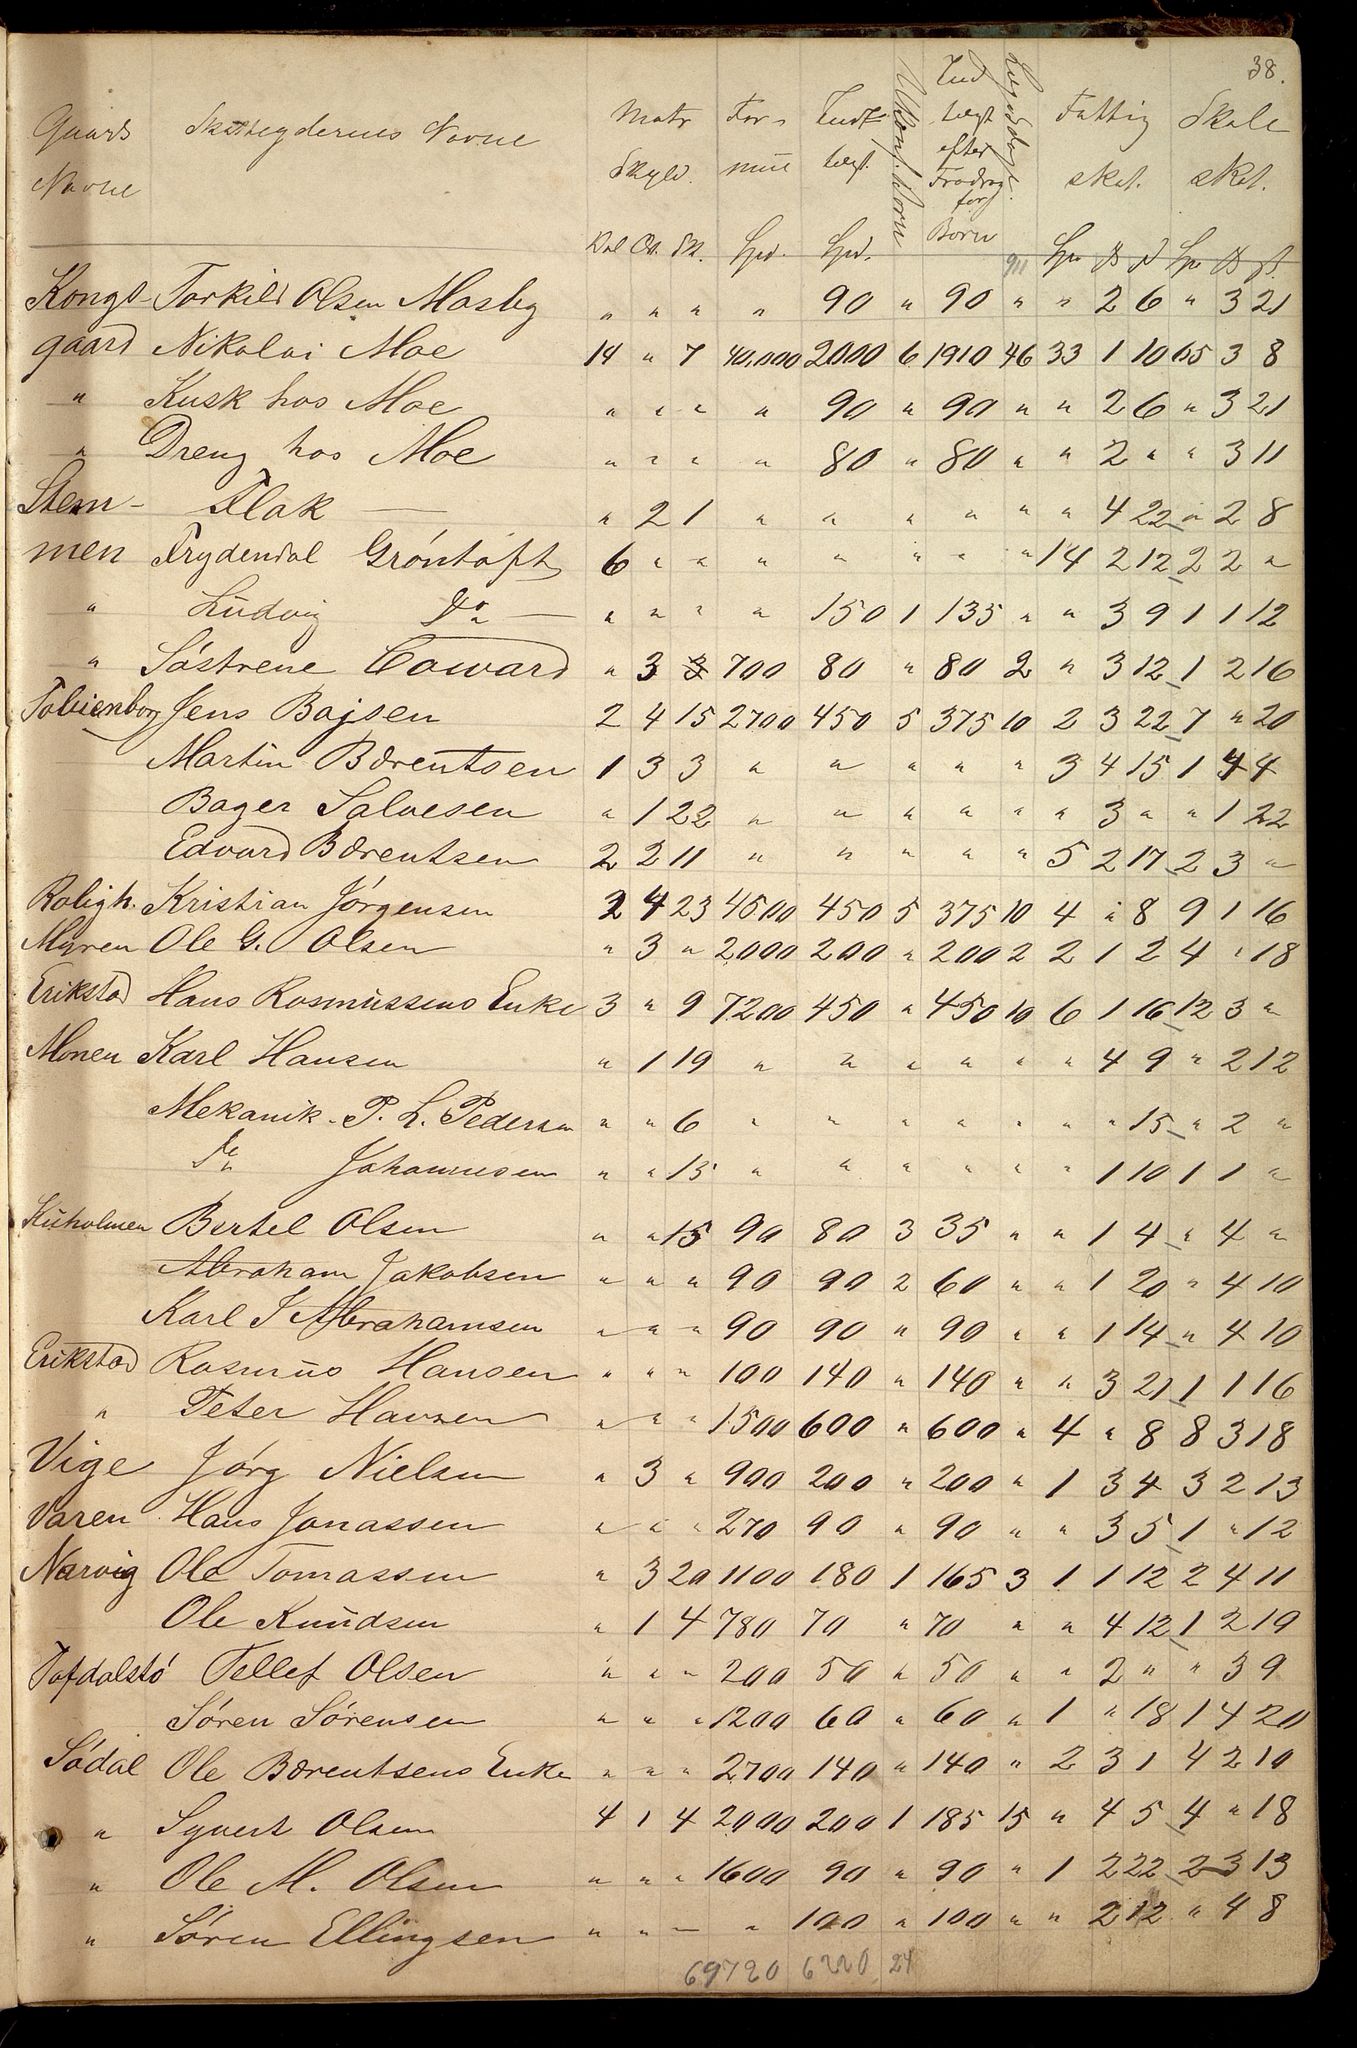 38.
Gaards Navne Skatteydernes Navne Matr Skyld. Formue Indtægt. Ukonf. Børn Indtægt efter Fradrag for Børn Lægdsdage. Fattig skat. Skole skat.
Dal Ort. Sk. Spd. Spd. 911 Spd ß Spd ß
Kongs- Torkild Olsen Mosbg " " " " 90 " 90 " " 2 6 " 3 21
gaard Nikolai Moe 14 " 7 40,000 2000 6 1910 46 33 1 10 65 3 8
" Kusk hos Moe " " " " 90 " 90 " " 2 6 " 3 21
" Dreng hos Moe " " " " 80 " 80 " " 2 " " 3 11
Stem- Flak — " 2 1 " " " " " " 4 22 " 2 8
men Frydendal Gröntoft 6 " " " " " " " 14 2 12 2 2 "
" Ludvig Do — " " " " 150 1 135 " " 3 9 1 1 12
" Söstrene Coward " 3 3 700 80 " 80 2 " 3 12 1 2 16
Tobienborg Jens Bojsen 2 4 15 2700 450 5 375 10 2 3 22 7 " 20
Martin Bærentsen 1 3 3 " " " " " 3 4 15 1 4 4
Bager Salvesen " 1 22 " " " " " " 3 " " 1 22
Edvard Bærentsen 2 2 11 " " " " " 5 2 17 2 3 "
Roligh. Kristian Jörgensen 2 4 23 4500 450 5 375 10 4 " 8 9 1 16
Myren Ole G. Olsen " 3 " 2000 200 " 200 2 2 1 2 4 " 18
Erikstad Hans Rasmussens Enke 3 " 9 7200 450 " 450 10 6 1 16 12 3 "
Monen Karl Hansen " 1 19 " " " " " " 4 9 " 2 12
Mekanik. P. L. Pedersen " " 6 " " " " " " " 15 " 2 "
Do Johannesen " " 15 " " " " " " 1 10 1 1 "
Kuholmen Bertel Olsen " " 15 90 80 3 35 " " 1 4 " 4 "
Abraham Jakobsen " " " 90 90 2 60 " " 1 20 " 4 10
Karl J Abrahamsen " " " 90 90 " 90 " " 1 14 " 4 10
Erikstad Rasmus Hansen " " " 100 140 " 140 " " 3 21 1 1 16
" Peter Hansen " " " 1500 600 " 600 " 4 " 8 8 3 18
Vige Jörg Nielsen " 3 " 900 200 " 200 " 1 3 4 3 2 13
Varen Hans Jonassen " " " 270 90 " 90 " " 3 5 1 " 12
Narvig Ole Tomassen " 3 20 1100 180 1 165 3 1 1 12 2 4 11
Ole Knudsen " 1 4 780 70 " 70 " " 4 12 1 2 19
Tofdalstö Tellef Olsen " " " 200 50 " 50 " " 2 " " 3 9
Sören Sörensen " " " 1200 60 " 60 " 1 " 18 1 4 20
Södal Ole Bærentsens Enke " " " 2700 140 " 140 " 2 3 1 4 2 10
" Syvert Olsen 4 1 4 2000 200 1 185 15 " 4 5 4 " 18
" Ole M. Olsen " " " 1600 90 " 90 " 1 2 22 2 3 13
" Sören Ellingsen " " — " 100 " 100 " " 2 12 " 4 8
69720 6220 24